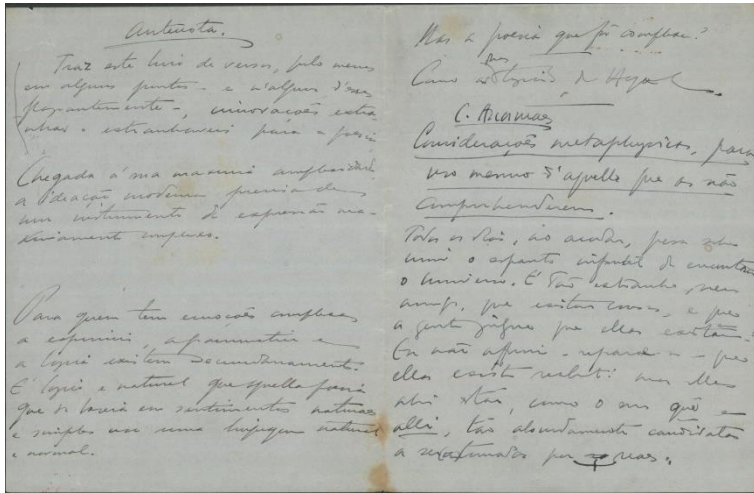 Antenota.
Traz este livro de versos, pelo menos
em alguns pontos - e n'alguns d'esses
flagrantemente -, innovações extra-
nhas e estranhaveis para a poesia
Chegada á sua maxima complexidade
a ideação moderna precisa de
um instrumento de expressão ma-
ximamente complexo.
Para quem tem emoções complexas
a exprimir, a grammatica e
a logica existem secundariamente.
É logico e natural que aquella poesia
que se baseia em sentimentos naturaes
e simples use uma linguagem natural
e normal.
Mas a poesia que fôr complexa?
Como de Hegel.
Considerações metaphysicas, para
uso mesmo d'aquelles que as não
comprehenderem.
Todos os dias, ao acordar, pesa sobre
mim o espanto infantil de encontrar
o universo. É tão extranho, meu
amigo, que existam cousas, e que
a gente julgue que ellas existam.
Eu não affirmo - repare - que
ellas existam mas ellas
ahi estão, como o seu quê e
alli, tão absurdamente candidatas
a por reaes.